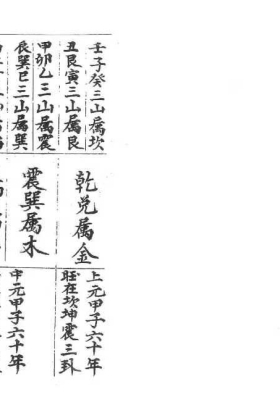 壬子癸三山属坎
丑艮寅三山属艮
甲卯乙三山属震
辰巽巳三山属巽
乾兑属金
震巽属木
上元甲子六十年
旺在坎坤震三卦
中元甲子六十年